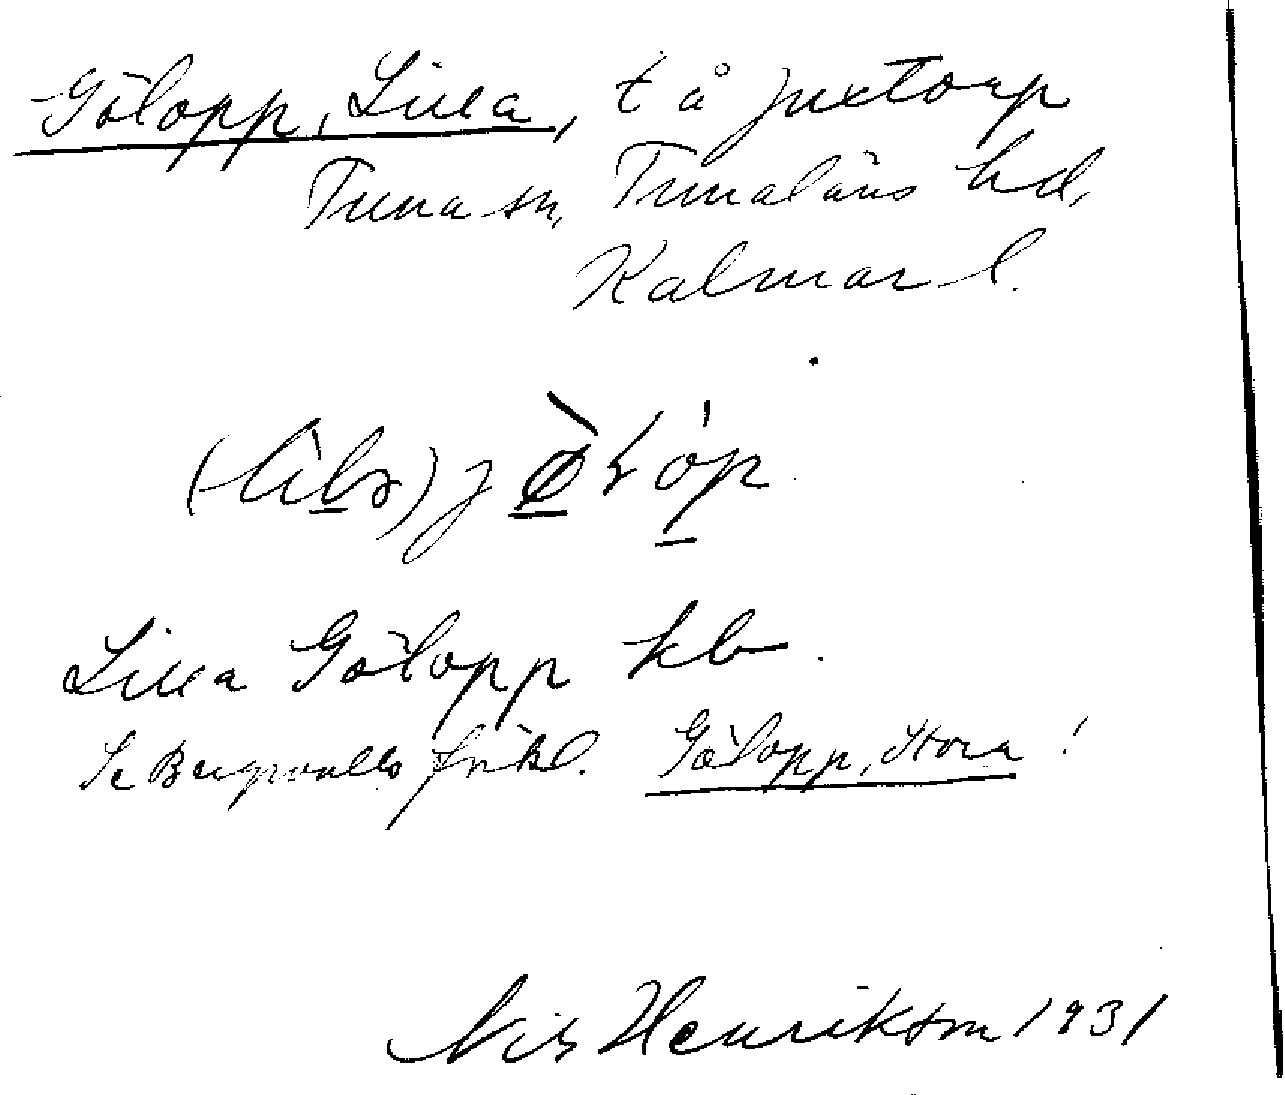 Gölopp, Lilla, t å Juxtorp
Tuna sn, Tunaläns hd,
Kalmar l.
Lilla Gölopp kb.
Se Bergvalls förkl. Gölopp, Stora!
Nils Henrikson 1931